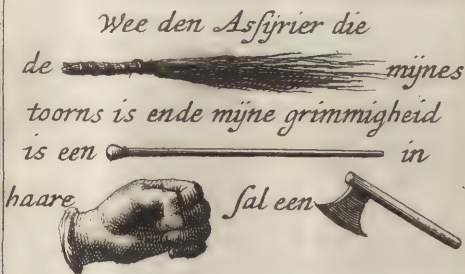 Wee den Assijrier die
de mijnes
toorns is ende mijne grimmigheid
is een in
haare sal een